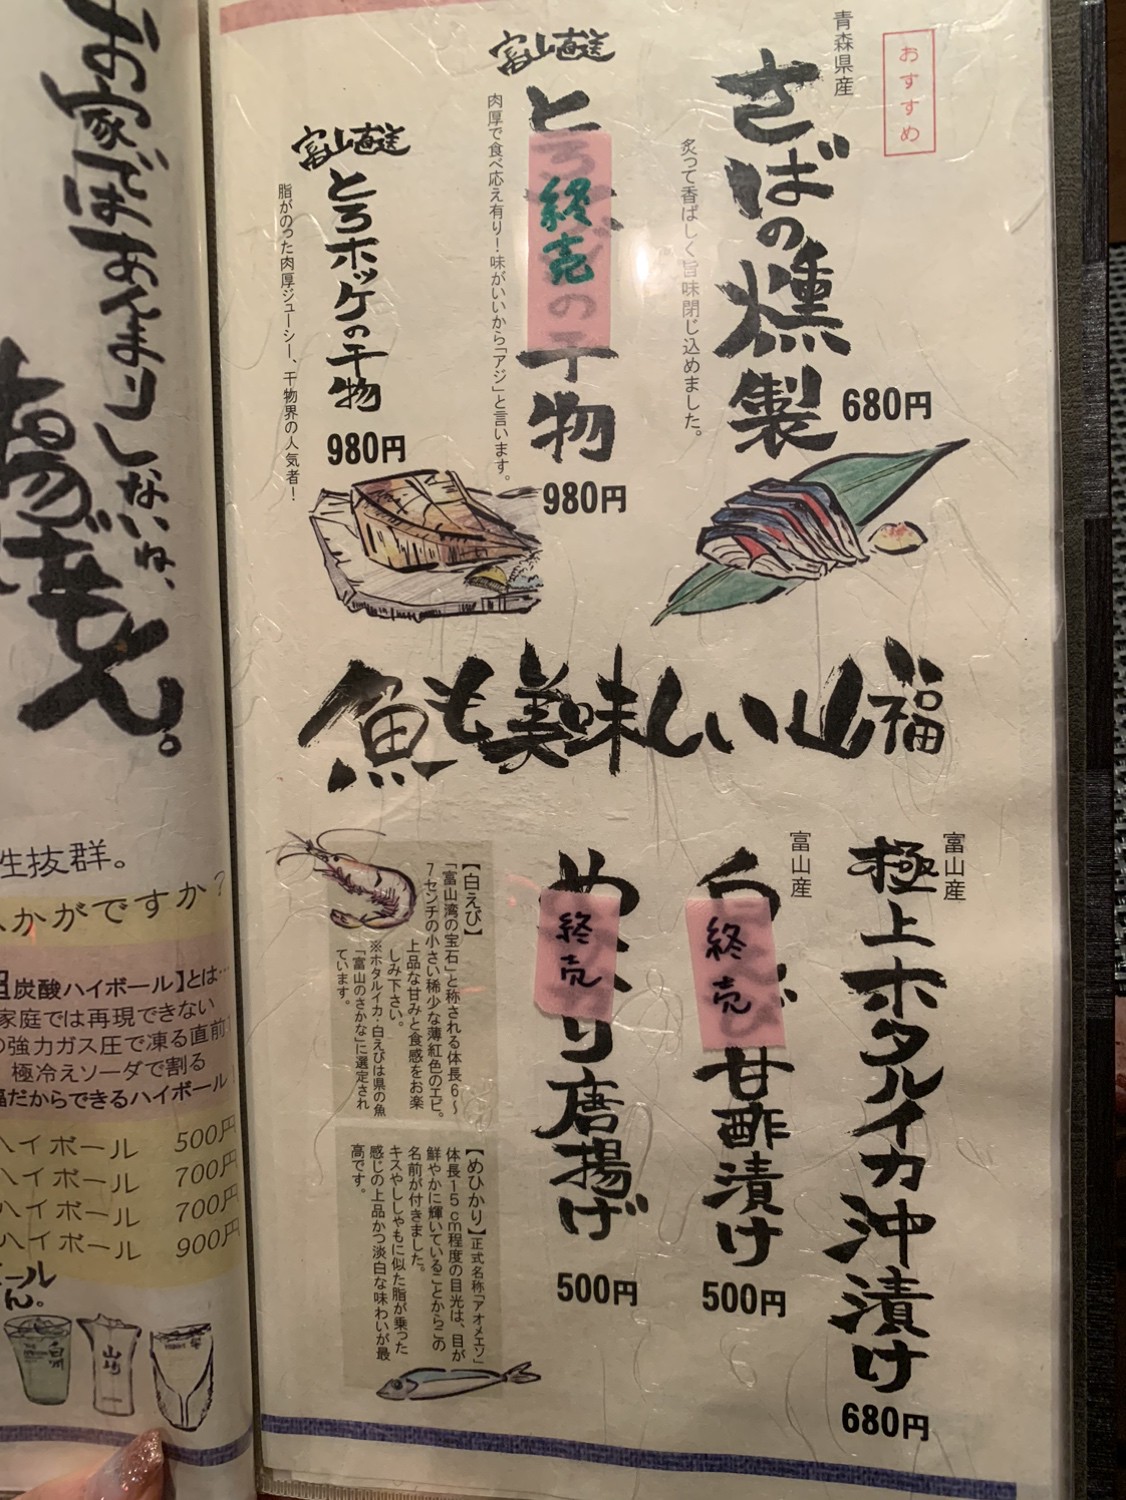 おすすめ
青森県産
さばの燻製
680円
炙って香ばしく旨味閉じ込めました。
富山直送
とろ
終売
の干物
980円
肉厚で食べ応え有り！味がいいから「アジ」と言います。
富山直送
とろホッケの干物
980円
脂がのった肉厚ジューシー、干物界の人気者！
魚も美味しい山福
富山産
極上ホタルイカ沖漬け
680円
富山産
終売
甘酢漬け
500円
め
終売
り唐揚げ
500円
【白えび】
「富山湾の宝石」と称される体長6〜
7センチの小さい稀少な薄紅色のエビ。
上品な甘みと食感をお楽
しみ下さい。
※ホタルイカ・白えびは県の魚
「富山のさかな」に選定され
ています。
【めひかり】正式名称「アオメエソ」
体長15cm程度の目光は、目が
鮮やかに輝いていることからこの
名前が付きました。
キスやししゃもに似た脂が乗った
感じの上品かつ淡白な味わいが最
高です。
お家ではあんまりしないね、
揚げもん。
性抜群。
かがですか？
炭酸ハイボール】とは…
家庭では再現できない
の強力ガス圧で凍る直前
極冷えソーダで割る
福だからできるハイボール
ハイボール 500円
ハイボール 700円
ハイボール 700円
ハイボール 900円
ール
ん。